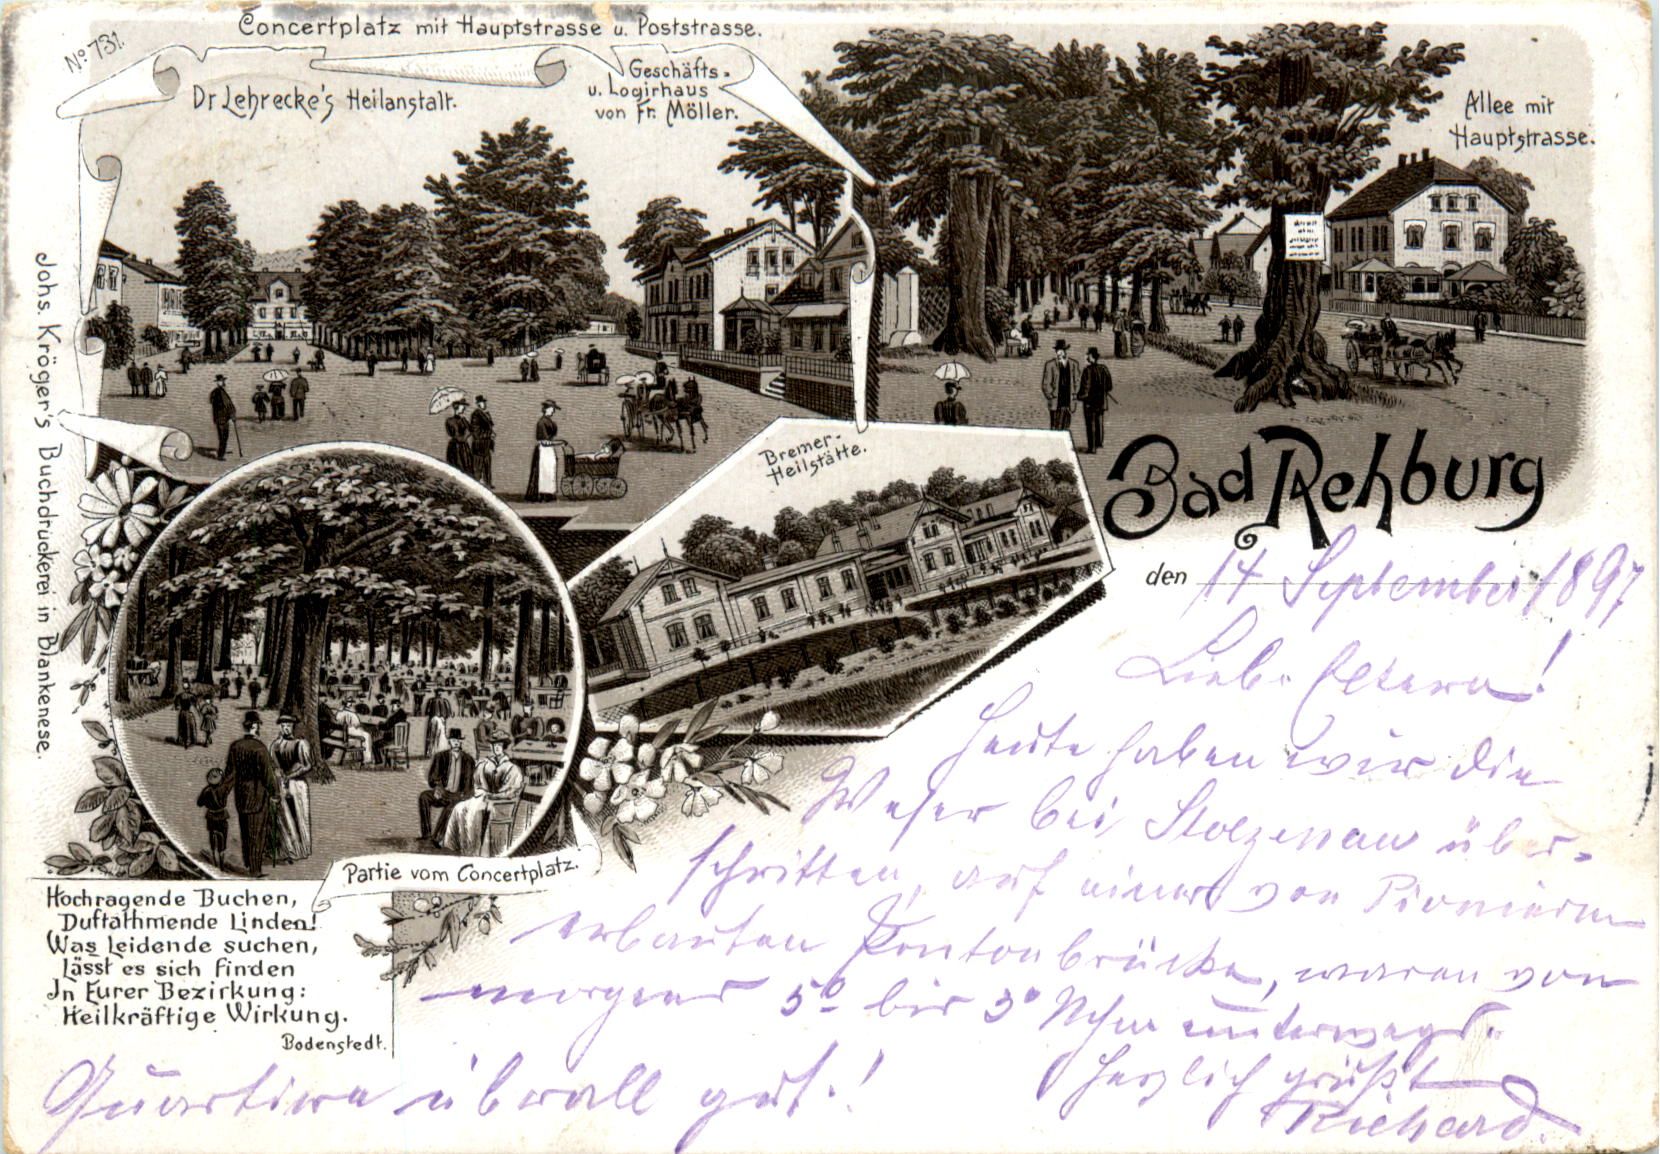 No 731.
Concertplatz mit Hauptstrasse u. Poststrasse.
Dr Lehrecke's Heilanstalt.
Geschäfts-
u. Logirhaus
von Fr. Möller.
Allee mit
Hauptstrasse.
Johs. Kröger's Buchdruckerei in Blankenese.
Bremer-
Heilstätte.
Bad Rehburg
Partie vom Concertplatz.
Hochragende Buchen,
Duftathmende Linden!
Was Leidende suchen,
Lässt es sich finden
In Eurer Bezirkung:
Heilkräftige Wirkung.
Bodenstedt.
den 14 September 1897
Liebe Eltern!
Heute haben wir die
Weser bei Stolzenau über-
schritten, auf einer von Pionieren
erbauten Pontonbrücke, waren von
morgens 5⁰ bis 3⁰ Nchm unterwegs.
Herzlich grüßt
Richard.
Quartire überall gut!